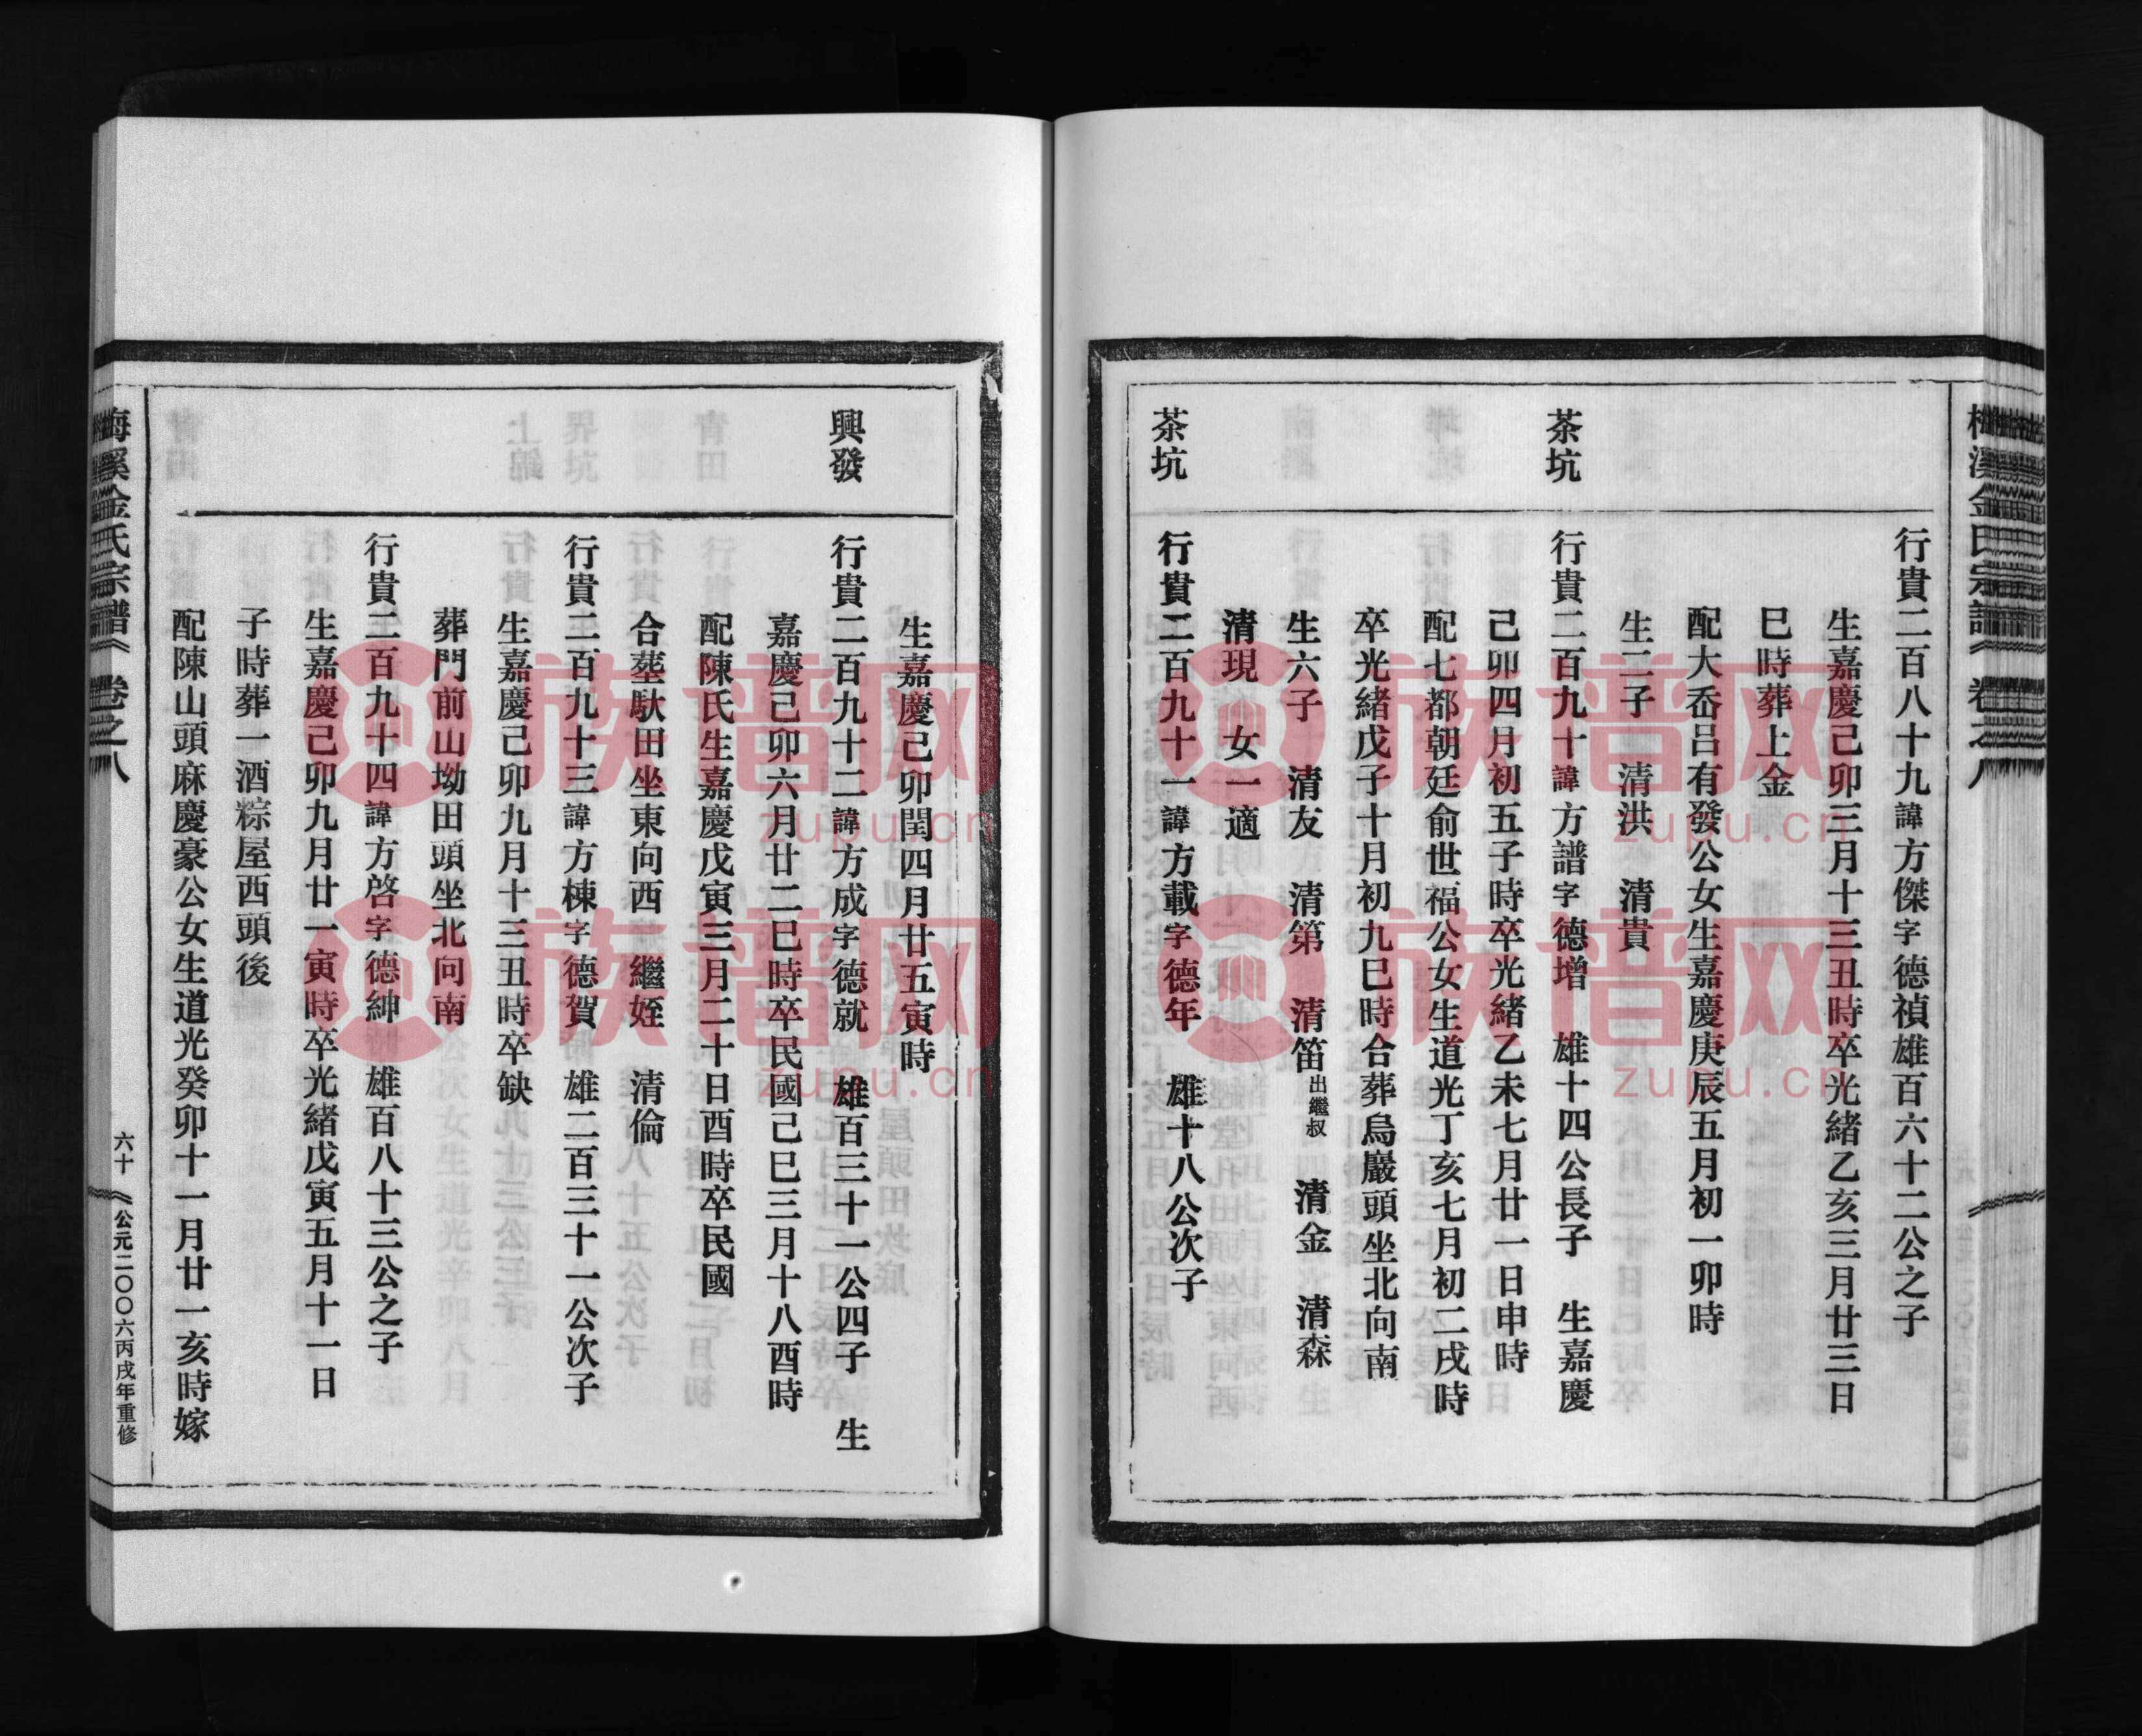 梅溪金氏宗譜 卷之八
行貴二百八十九諱方傑字德禎雄百六十二公之子
生嘉慶己卯三月十三丑時卒光緒乙亥三月廿三日
巳時葬上金
配大岙呂有發公女生嘉慶庚辰五月初一卯時
生二子 清洪 清貴
茶坑
行貴二百九十諱方譜字德增 雄十四公長子 生嘉慶
己卯四月初五子時卒光緒乙未七月廿一日申時
配七都朝廷俞世福公女生道光丁亥七月初二戌時
卒光緒戊子十月初九巳時合葬烏巖頭坐北向南
生六子 清友 清第 清笛出繼叔 清金 清森
清現 女一適
茶坑
行貴二百九十一諱方載字德年 雄十八公次子
生嘉慶己卯閏四月廿五寅時
興發
行貴二百九十二諱方成字德就 雄百三十一公四子 生
嘉慶己卯六月廿二巳時卒民國己巳三月十八酉時
配陳氏生嘉慶戊寅三月二十日酉時卒民國
合塟馱田坐東向西 繼姪 清倫
行貴二百九十三諱方棟字德賀 雄二百三十一公次子
生嘉慶己卯九月十三丑時卒缺
葬門前山坳田頭坐北向南
行貴二百九十四諱方啓字德紳 雄百八十三公之子
生嘉慶己卯九月廿一寅時卒光緒戊寅五月十一日
子時葬一酒粽屋西頭後
配陳山頭麻慶豪公女生道光癸卯十一月廿一亥時嫁
梅溪金氏宗譜 卷之八
六十 公元二〇〇六丙戌年重修
族谱网
zupu.cn
族谱网
zupu.cn
族谱网
zupu.cn
族谱网
zupu.cn